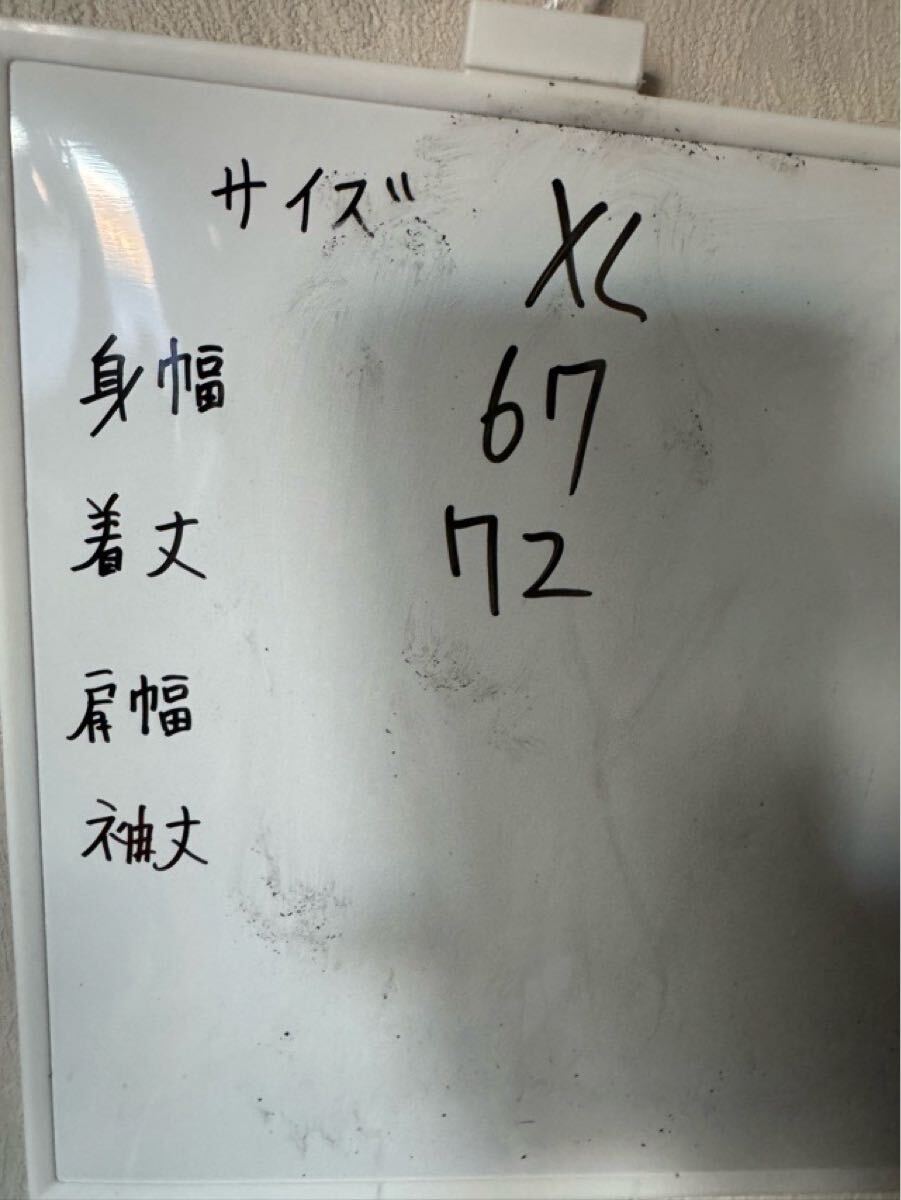 サイズ XL
身幅 67
着丈 72
肩幅
袖丈